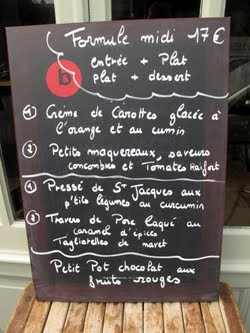 Formule midi 17€
entrée + Plat
plat + dessert
B
① Crème de Carottes glacée à
l'orange et au cumin
② Petits maquereaux, saveurs
concombres et Tomates Raifort
① Pressé de St Jacques aux
p'tits légumes au curcumin
② Travers de Porc laqué au
caramel d'épices
Tagliatelles de
Petit Pot chocolat aux
fruits rouges